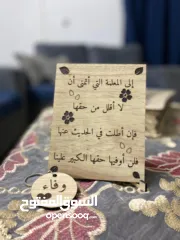 إلى المعلمة التي أتمنى أن
لا أقلل من حقها
فإن أطلت في الحديث عنها
فلن أوفيها حقها الكبير علينا
وفاء
السوق المفتوح